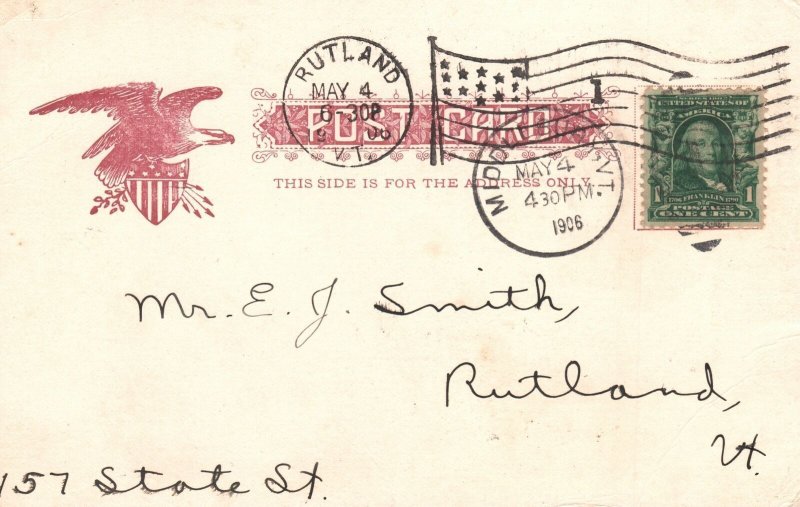 RUTLAND
MAY 4
6-30P
VT.
1
POST CARD
THIS SIDE IS FOR THE ADDRESS ONLY.
MAY 4
4 30 PM.
1906
VT.
UNITED STATES OF
AMERICA
1 1
1706 FRANKLIN 1790
POSTAGE
ONE CENT
Mr. E. J. Smith,
Rutland,
Vt.
157 State St.